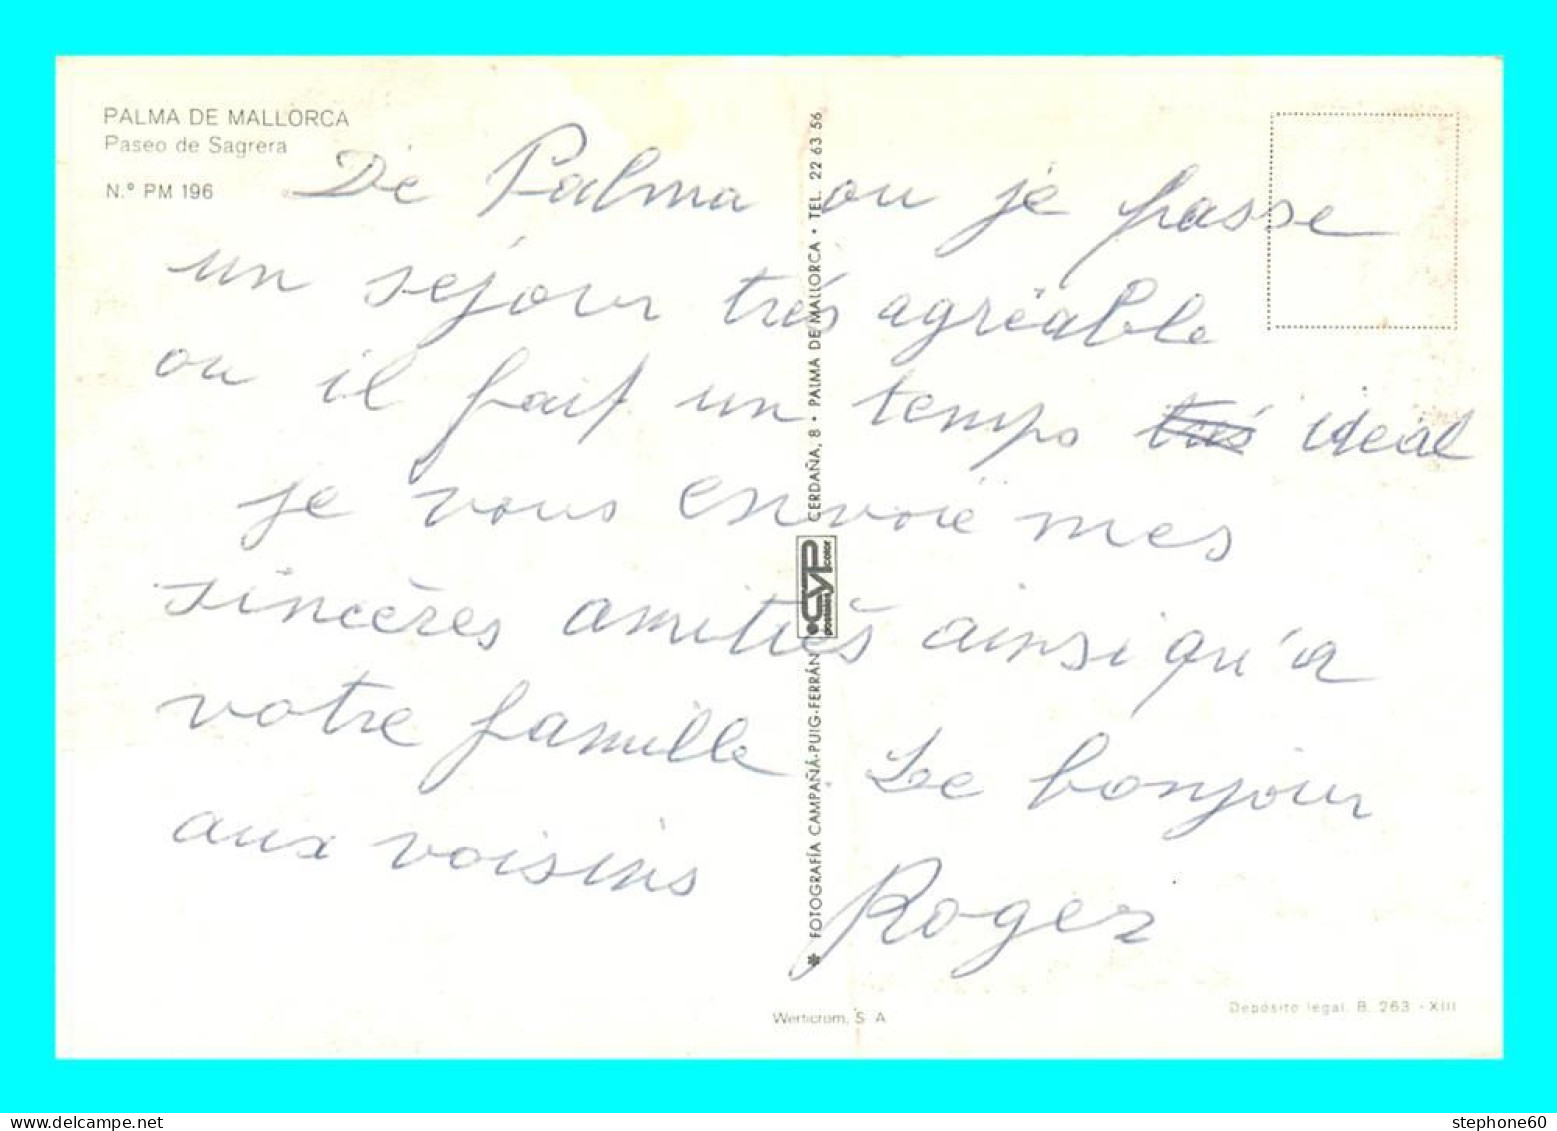 PALMA DE MALLORCA
Paseo de Sagrera
N.º PM 196
De Palma ou je passe
un séjour trés agréable
ou il fait un temps trés idéal
je vous envoie mes
sincères amitiés ainsi qu'a
votre famille. Le bonjour
aux voisins
Roger
✱ FOTOGRAFÍA CAMPAÑÁ-PUIG-FERRÁN
CYP
postales color
CERDAÑA, 8 • PALMA DE MALLORCA • TEL. 22 63 56
Werticrom, S. A.
Depósito legal. B. 263 - XIII
stephone60